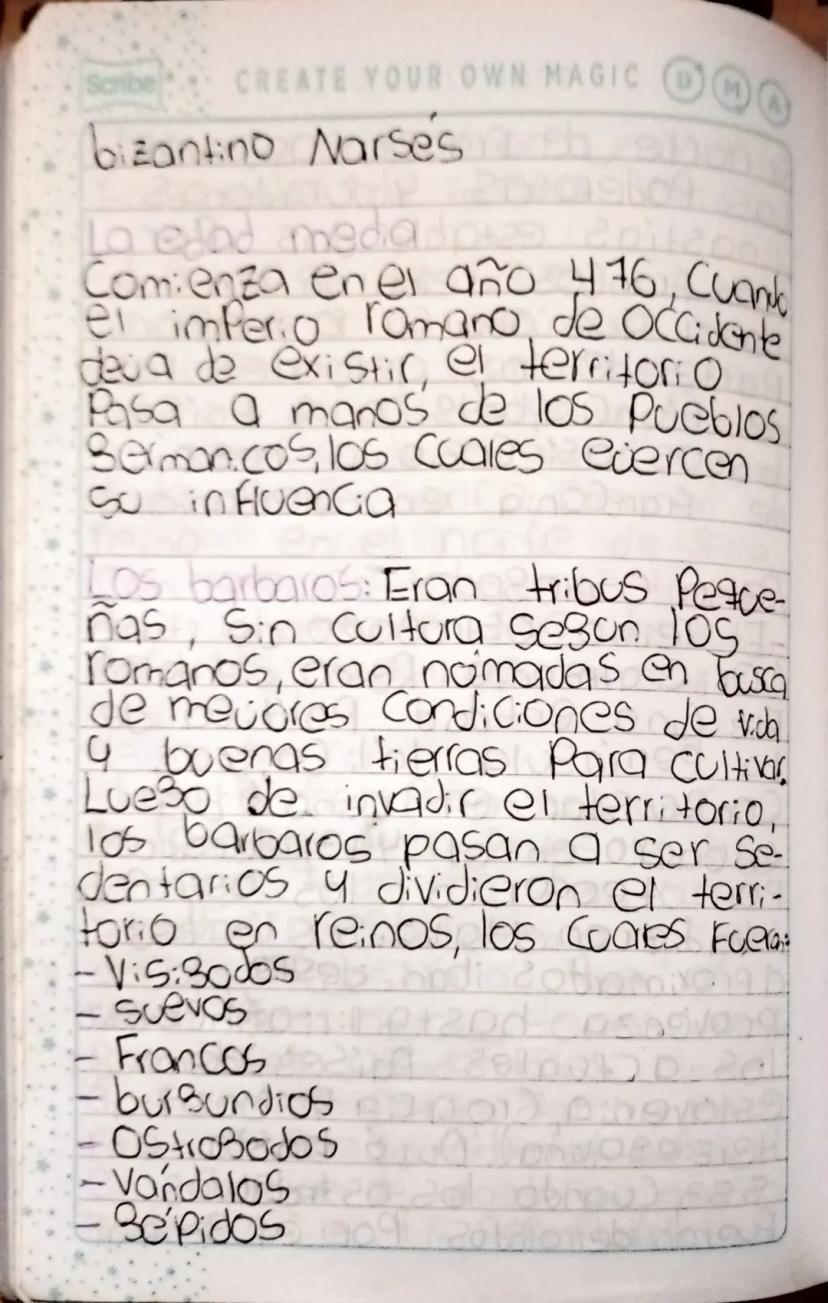 Scribe
CREATE YOUR OWN MAGIC D M A
bizantino Narsés
La edad media
Comienza en el año 476, Cuando
el imperio romano de occidente
deja de existir, el territorio
Pasa a manos de los Pueblos
germanicos, los cuales ejercen
su influencia
Los barbaros: Eran tribus Peque-
ñas, Sin cultura Segun los
romanos, eran nómadas en busca
de mejores condiciones de vida
y buenas tierras Para cultivar.
Luego de invadir el territorio,
los bárbaros pasan a ser Se-
dentarios y dividieron el terri-
torio en reinos, los cuales Fueron:
- Visigodos
- suevos
- Francos
- burgundios
- Ostrogodos
- Vándalos
- gépidos